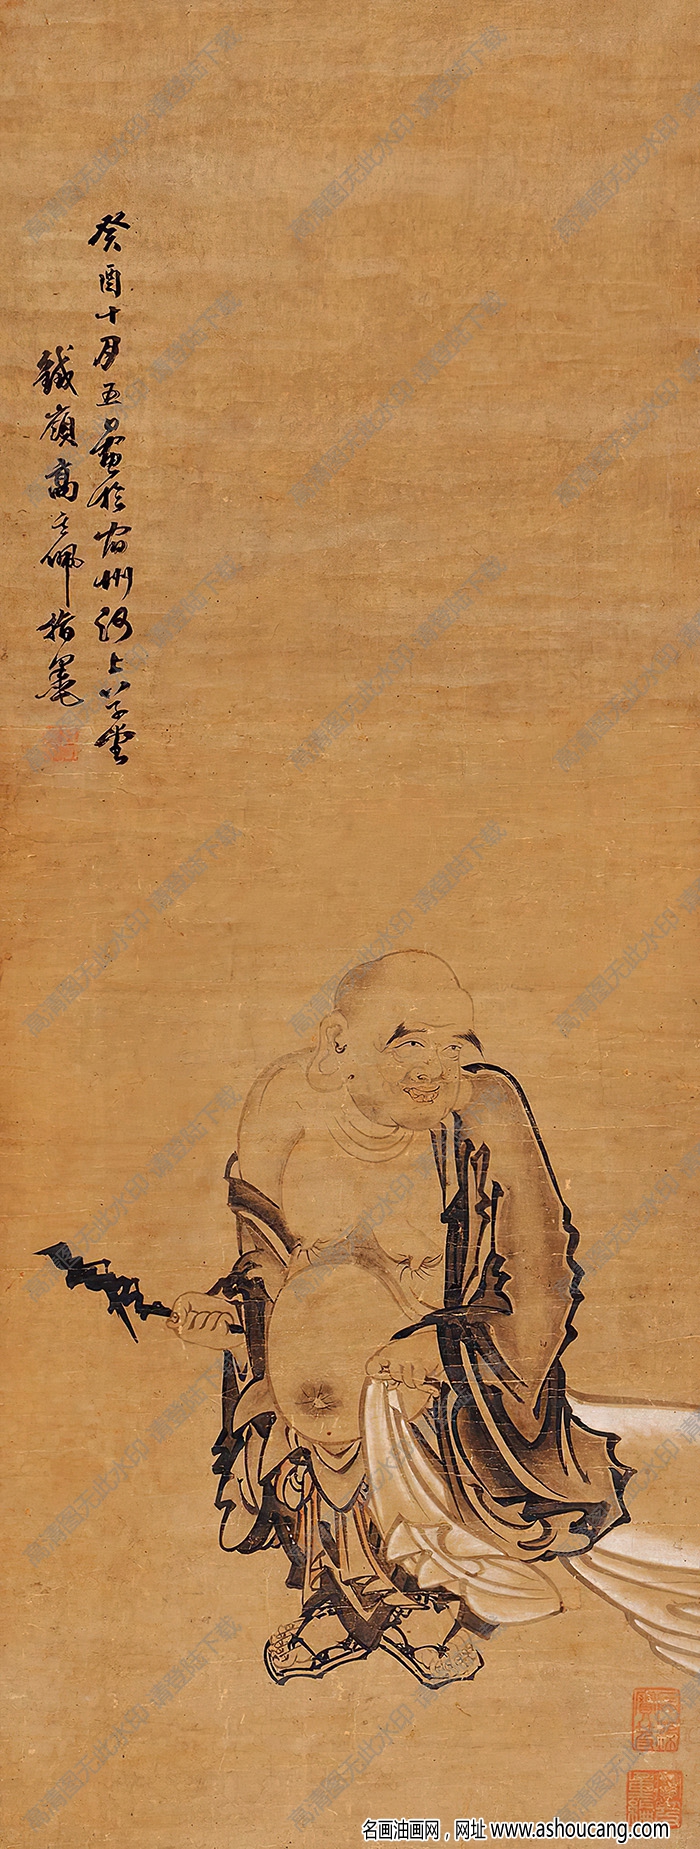 癸酉十月五日畫於宿州河上八子堂
鐵嶺高其佩指墨
高清图无此水印 请登陆下载
名画油画网，网址 www.ashoucang.com